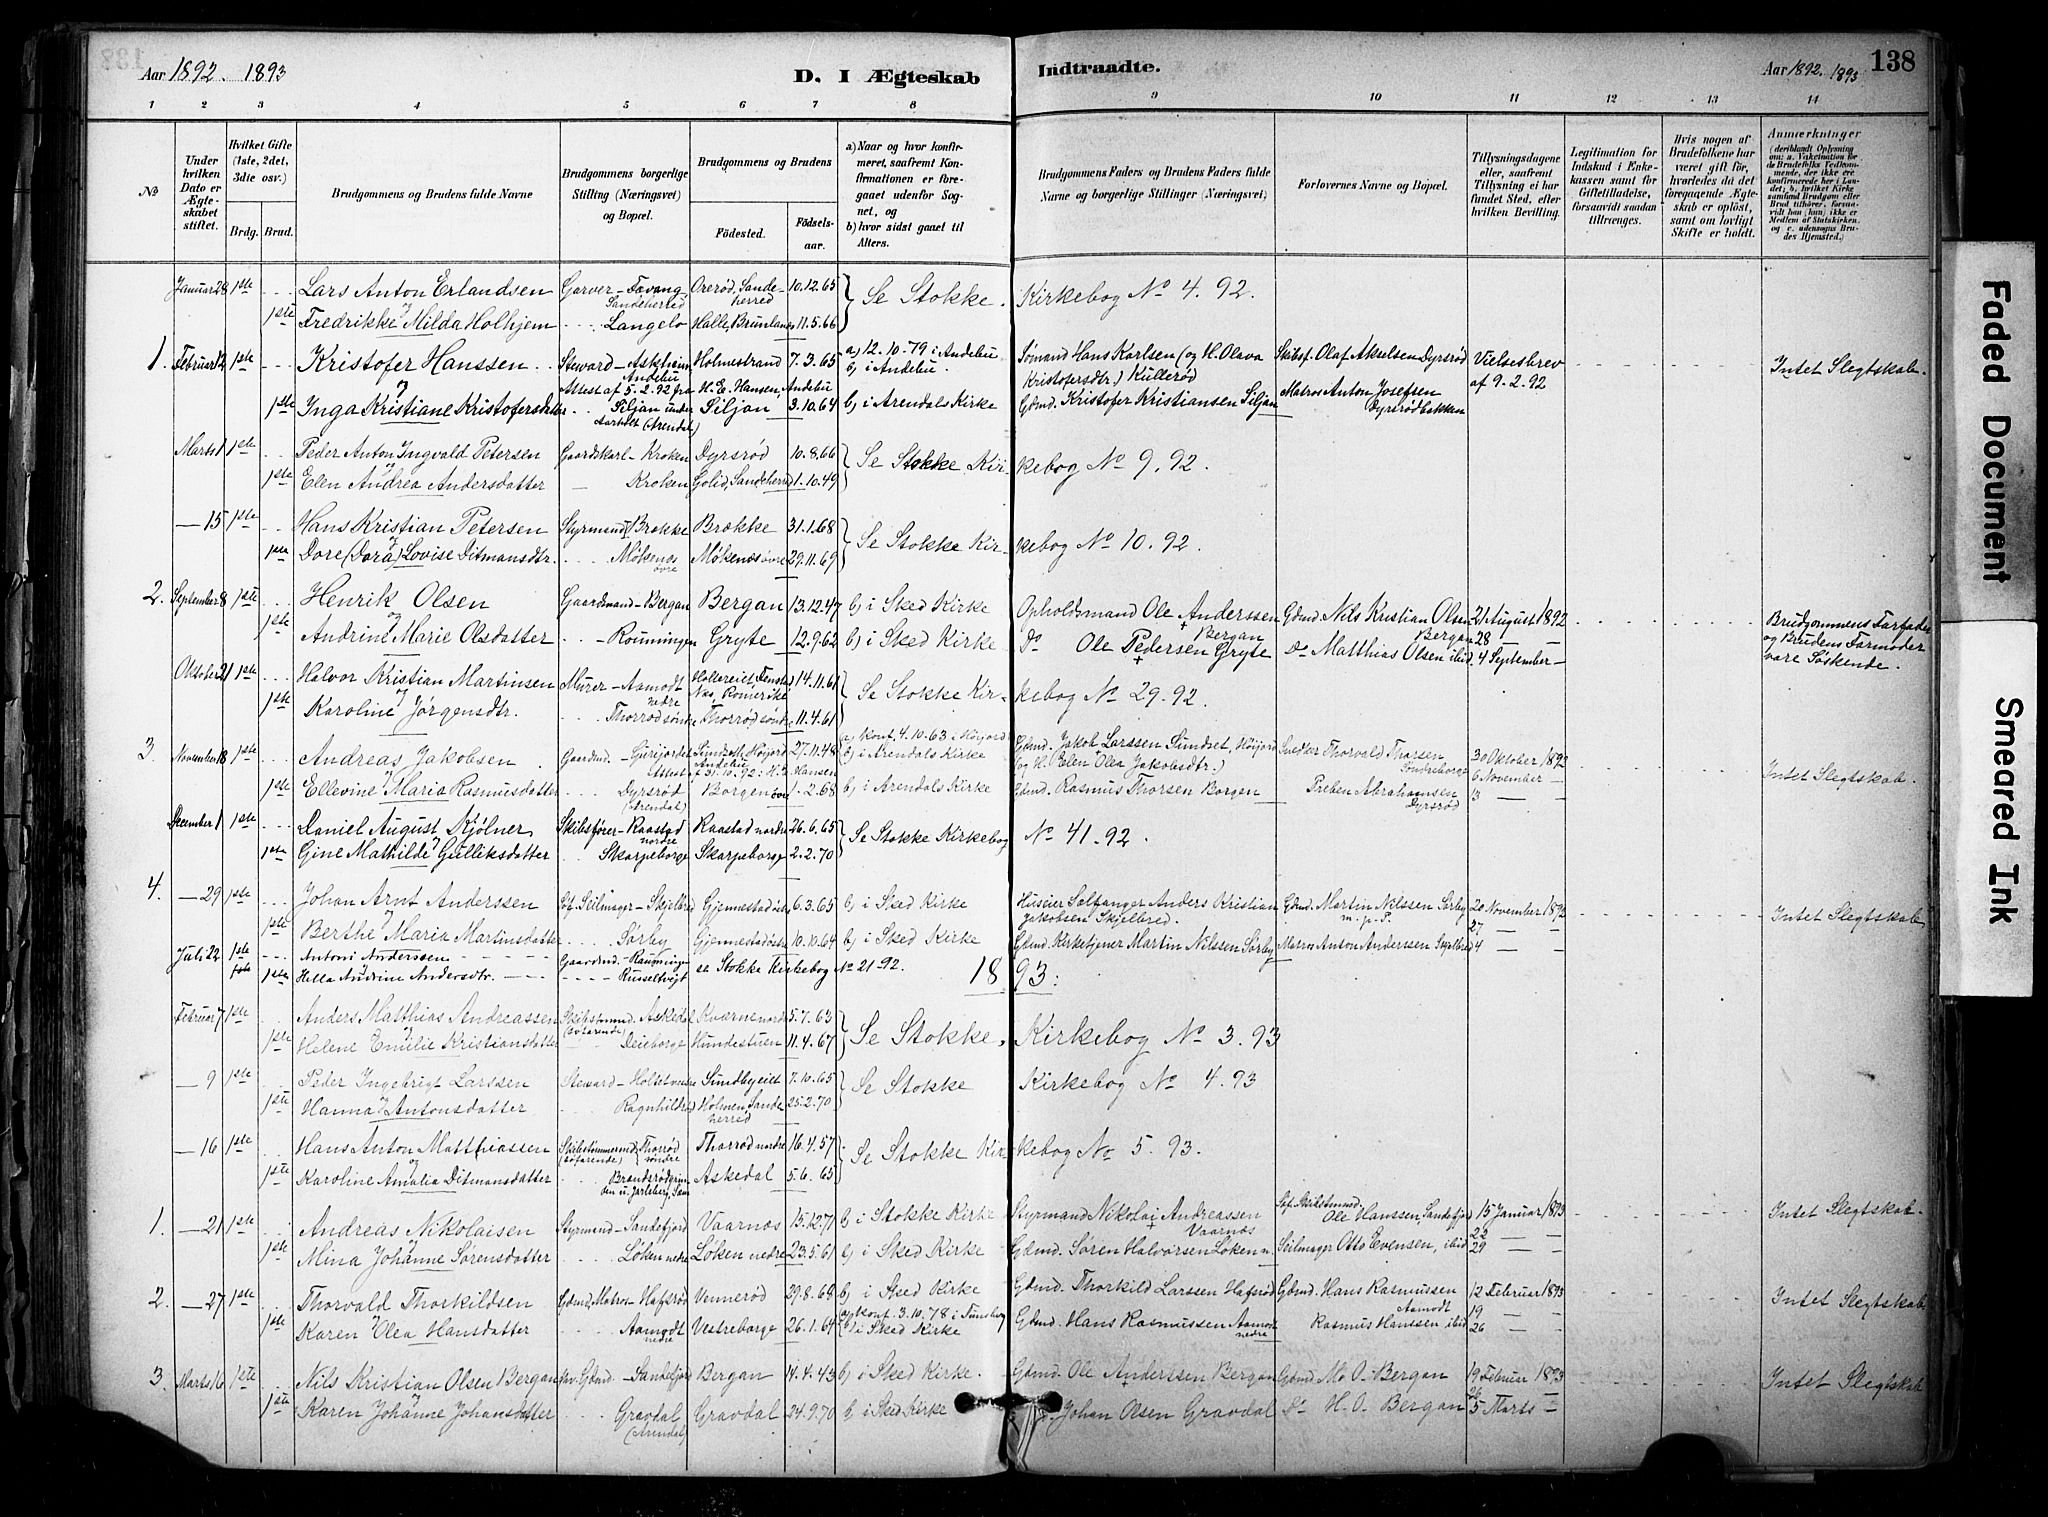 Aar 1892. 1893
D. I Ægteskab Indtraadte.
Aar 1892. 1893
138
1 2 3 4 5 6 7 8 9 10 11 12 13 14
No
Under hvilken Dato er Ægteskabet stiftet.
Hvilket Gifte (1ste, 2det, 3die osv.)
Brdg. Brud.
Brudgommens og Brudens fulde Navne
Brudgommens borgerlige Stilling (Næringsvei) og Bopæl.
Brudgommens og Brudens
Fødested. Fødselsaar.
a) Naar og hvor konfirmeret, saafremt Konfirmationen er foregaaet udenfor Sognet, og
b) hvor sidst gaaet til Alters.
Brudgommens Faders og Brudens Faders fulde Navne og borgerlige Stillinger (Næringsvei)
Forlovernes Navne og Bopæl.
Tillysningsdagene eller, saafremt Tillysning ei har fundet Sted, efter hvilken Bevilling.
Legitimation for Indskud i Enkekassen samt for Giftetilladelse, forsaavidt saadan tiltrænges.
Hvis nogen af Brudefolkene har været gift før, hvorledes da det foregaaende Ægteskab er opløst, samt om lovligt Skifte er holdt.
Anmærkninger (deriblandt Oplysning om: a. Vakcination for de Brudefolks Vedkommende, der ikke ere konfirmerede her i Landet; b. hvilket Kirkesamfund Brudgom eller Brud tilhører, forsaavidt han (hun) ikke er Medlem af Statskirken, og c. udensogns Brudes Hjemsted.)
Januar 28 1ste Lars Anton Erlandsen Garver - Fævang, Sandeherred Orerød, Sandeherred 10.12.65 Se Stokke Kirkebog No 4. 92.
1ste Fredrikke Milda Holhjem Langelo Halle, Brunlanes 11.5.66
1. Februar 12 1ste Kristofer Hanssen Steward - Askheim Andebu Holmestrand 7.3.65 a) 12.10.79 i Andebu b) i Andebu Sømand Hans Karlsen (og H. Olava Kristofersdtr.) Kullerød Skibsf. Olaf Akselsen Dyrsrød Vielsesbrev af 9.2.92 Intet Slegtskab.
Attest af 5.2.92 fra H. E. Hansen, Andebu
1ste Inga Kristiane Kristofersdatter Siljan under Aarholt (Arendal) Siljan 3.10.64 b) i Arendals Kirke Gdmd. Kristofer Kristiansen Siljan Matros Anton Josefsen Dyrsrødbakken
Marts 1 1ste Peder Anton Ingvald Petersen Gaardskarl - Kroken Dyrsrød 10.8.66 Se Stokke Kirkebog No 9. 92.
1ste Elen Andrea Andersdatter Kroken Golid, Sandeherred 1.10.49
— 15 1ste Hans Kristian Petersen Styrmand - Brekke Brække 31.1.68 Se Stokke Kirkebog No 10. 92.
1ste Dore (Dora) Lovise Ditmansdtr. Møkenæs øvre Møkenæs øvre 29.11.69
2. September 8 1ste Henrik Olsen Gaardmand - Bergan Bergan 13.12.47 b) i Sked Kirke Opholdsmand Ole Anderssen Bergan Gdmd. Nils Kristian Olsen Bergan 21 August 1892 Brudgommens Farfader og Brudens Farmoder vare Søskende.
28 —
1ste Andrine Marie Olsdatter Rønningen Gryte 12.9.62 b) i Sked Kirke Do Ole Pedersen Gryte Do Matthias Olsen ibid 4 September —
Oktober 21 1ste Halvor Kristian Martinsen Murer - Aamodt nedre Næs, Romerike 14.11.61 Se Stokke Kirkebog No 29. 92.
1ste Karoline Jørgensdtr. Thorrød søndre Thorrød søndre 11.4.61
3. November 18 1ste Andreas Jakobsen Gaardmd. 27.11.48 a) konf. 4.10.63 i Høijord b) i Arendals Kirke Gdmd. Jakob Larssen Sundset, Høijord (og H. Elen Olea Jakobsdtr.) Snedker Thorvald Thorsen Søndreborge 30 Oktober 1892 Intet Slegtskab.
Attest af 31.10.92: H. E. Hansen
6 November —
1ste Ellevine Maria Rasmusdatter Dyrsrød (Arendal) Borgen øvre 1.2.68 b) i Arendals Kirke Gdmd. Rasmus Thorsen Borgen Preben Abrahamsen Dyrsrød 13 —
December 1 1ste Daniel August Kjølner Skibsfører - Raastad nordre Raastad nordre 26.6.65 Se Stokke Kirkebog No 41. 92.
1ste Gine Mathilde Gulliksdatter Skarpeborge Skarpeborge 2.2.70
4. — 29 1ste Johan Arnt Anderssen Seilmager - Skjelbred Gjennestad østre 6.3.65 b) i Sked Kirke Huseier Solfanger Anders Kristian Jakobsen Skjelbred. Gdmd. Martin Nilssen Sørby m. p. P. 20 November 1892 Intet Slegtskab
27 —
1ste Berthe Maria Martinsdatter Sørby Gjennestad østre 10.10.64 b) i Sked Kirke Gdmd. Kirketjener Martin Nilssen Sørby Matros Anton Anderssen Skjelbred 4 —
Juli 22 1ste Antoni Anderssen Gaardmd. - Raumingen se Stokke Kirkebog No 21 92.
1ste Hella Andrine Andersdtr. Russeltvigt
1893:
Februar 7 1ste Anders Matthias Andreassen Skibstmmd. (søfarende) Askedal Kværne nordre 5.7.63 Se Stokke Kirkebog No 3. 93
1ste Helene Emilie Kristiansdatter Deieborge Hundestuen 11.4.67
— 9 1ste Peder Ingebrigt Larssen Steward - Holtet vestre Sundbyeiet 7.10.65 Se Stokke Kirkebog No 4. 93
1ste Hanna Antonsdatter Ragnhildrød Holmen, Sandeherred 25.2.70
— 16 1ste Hans Anton Matthiassen Skibstømmermd. (søfarende) Thorrød søndre Thorrød nordre 16.4.57 Se Stokke Kirkebog No 5. 93.
1ste Karoline Amalia Ditmansdatter Askedal 5.6.65
1. — 21 1ste Andreas Nikolaisen Styrmand - Sandefjord Vaarnæs 15.12.71 b) i Stokke Kirke Styrmand Nikolai Andreassen Vaarnæs Ole Hanssen, Sandefjord 15 Januar 1893 Intet Slegtskab
22 —
1ste Mina Johanne Sørensdatter Løken nedre Løken nedre 23.5.61 b) i Sked Kirke Gdmd. Søren Halvorsen Løken n. Seilmager Otto Evensen, ibid 29 —
2. — 27 1ste Thorvald Thorkildsen Gdmd, Matros - Hafsrød Vennerød 29.8.69 b) i Sked Kirke Gdmd. Thorkild Larssen Hafsrød Gdmd. Hans Rasmussen Aamodt 12 Februar 1893 Intet Slegtskab
19 —
1ste Karen Olea Hansdatter Aamodt nedre Vestreborge 26.1.64 a) konf. 3.10.78 i Tunsberg b) i Sked Kirke Gdmd. Hans Rasmussen Aamodt nedre Rasmus Hanssen ibid 26 —
3. Marts 16 1ste Nils Kristian Olsen Bergan Gdmd. - Sandefjord Bergan 14.4.43 b) i Sked Kirke. Gdmd. Ole Anderssen Bergan Gdmd. M. O. Bergan 19 Februar 1893 Intet Slegtskab
26
1ste Karen Johanne Johansdatter Gravdal (Arendal) Gravdal 24.9.70 b) i Sked Kirke Johan Olsen Gravdal Do H. O. Bergan 5 Marts —
Faded Document
Smeared Ink